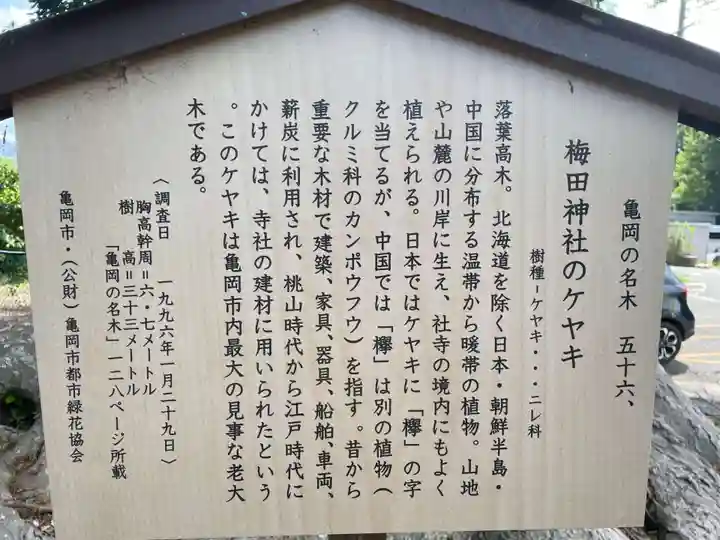 亀岡の名木　五十六、
梅田神社のケヤキ
樹種－ケヤキ・・・ニレ科
落葉高木。北海道を除く日本・朝鮮半島・
中国に分布する温帯から暖帯の植物。山地
や山麓の川岸に生え、社寺の境内にもよく
植えられる。日本ではケヤキに「欅」の字
を当てるが、中国では「欅」は別の植物（
クルミ科のカンポウフウ）を指す。昔から
重要な木材で建築、家具、器具、船舶、車両、
薪炭に利用され、桃山時代から江戸時代に
かけては、寺社の建材に用いられたという
。このケヤキは亀岡市内最大の見事な老大
木である。
〈調査日　一九九六年一月二十九日〉
胸高幹周＝六・七メートル
樹　高＝三十三メートル
「亀岡の名木」一二八ページ所載
亀岡市・（公財）亀岡市都市緑花協会